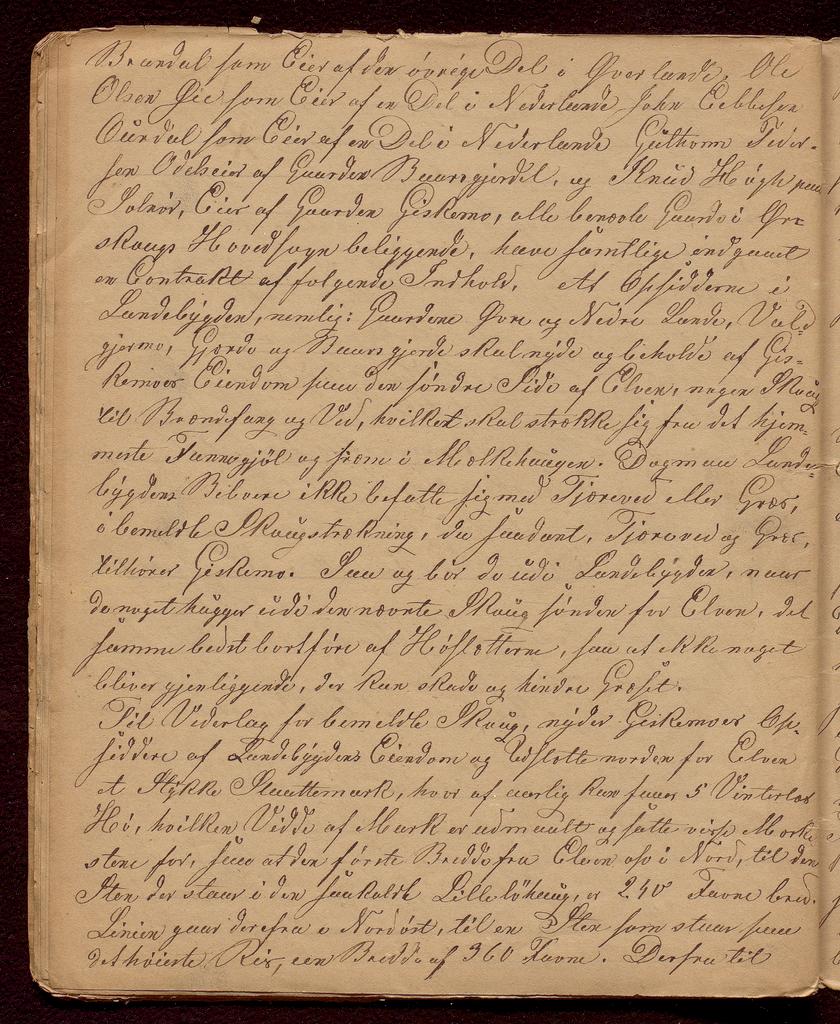 Brandal som Eier af den övrige Del i Øverlande. Ole
Olsen Øie som Eier af en Del i Nederlande John Eebbesen
Aurdal som Eier af en Del i Nederlande Guthorm Peder-
sen Odelseier af Gaarden Baarsgjerdet, og Knud Høgh paa
Solnør, Eier af Gaarden Giskemo, alle benævte Gaarde i Ør-
skougs Hovedsogn beliggende, have samtlige indgaaet
en Contrakt af følgende Indhold, At Opsidderne i
Landebygden, nemlig: Gaardene Øvre og Nedre Lande, Vald-
gjermo, Gjerde og Baarsgjerde skal nyde og beholde af Gis-
kemoes Eiendom paa den søndre Side af Elven, nogen Skoug
til Brændefang og Ved, hvilket skal strække sig fra det hjem-
meste og frem i Melkehaugen. Dog maa Lande-
bygdens Beboere ikke befatte sig med Tjæreved eller Græs,
i bemeldte Skougstrækning, da saadant, Tjæreved og Græs,
tilhører Giskemo. Saa og bør de udi Landebygden, naar
de noget hugger udi den nævnte Skoug sønden for Elven, det
samme bedst bortføre af Høslotterne, saa at ikke noget
bliver gjenliggende, der kan skade og hindre Græset.
Til Vederlag for bemeldte Skoug, nyder Giskemoes Op-
siddere af Landebygdens Eiendom og Udslotte norden for Elven
et Stykke Slaattemark, hvor af aarlig kan faaes 5 Vinterlas
Hö, hvilken Vidde af Mark er udmaalt og satte visse Merke-
stene for, saa at den første Bredde fra Elven op i Nord, til den
Sten der staar i den saakaldte Lillelöhaug, er 240 Favne bred.
Linien gaar derfra i Nordöst, til en Sten som staar paa
det höieste Reis, een Bredde af 360 Favne. Derfra til